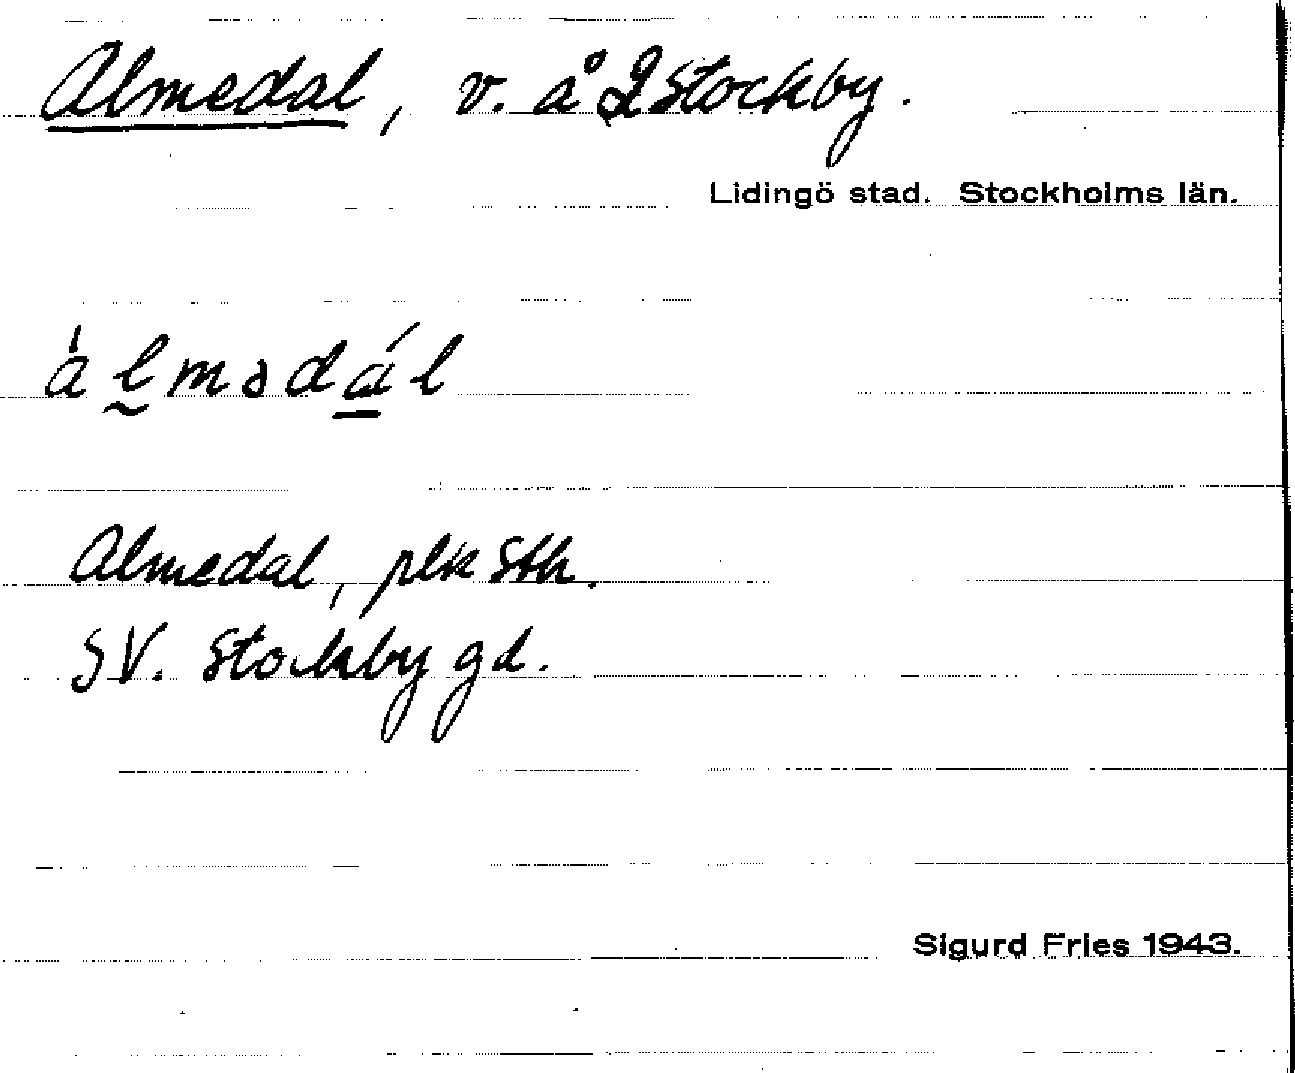 Almedal, v. å 2 Stockby.
Lidingö stad. Stockholms län.
àl̰mədά̲l
Almedal, plk Sth.
SV. Stockby gd.
Sigurd Fries 1943.